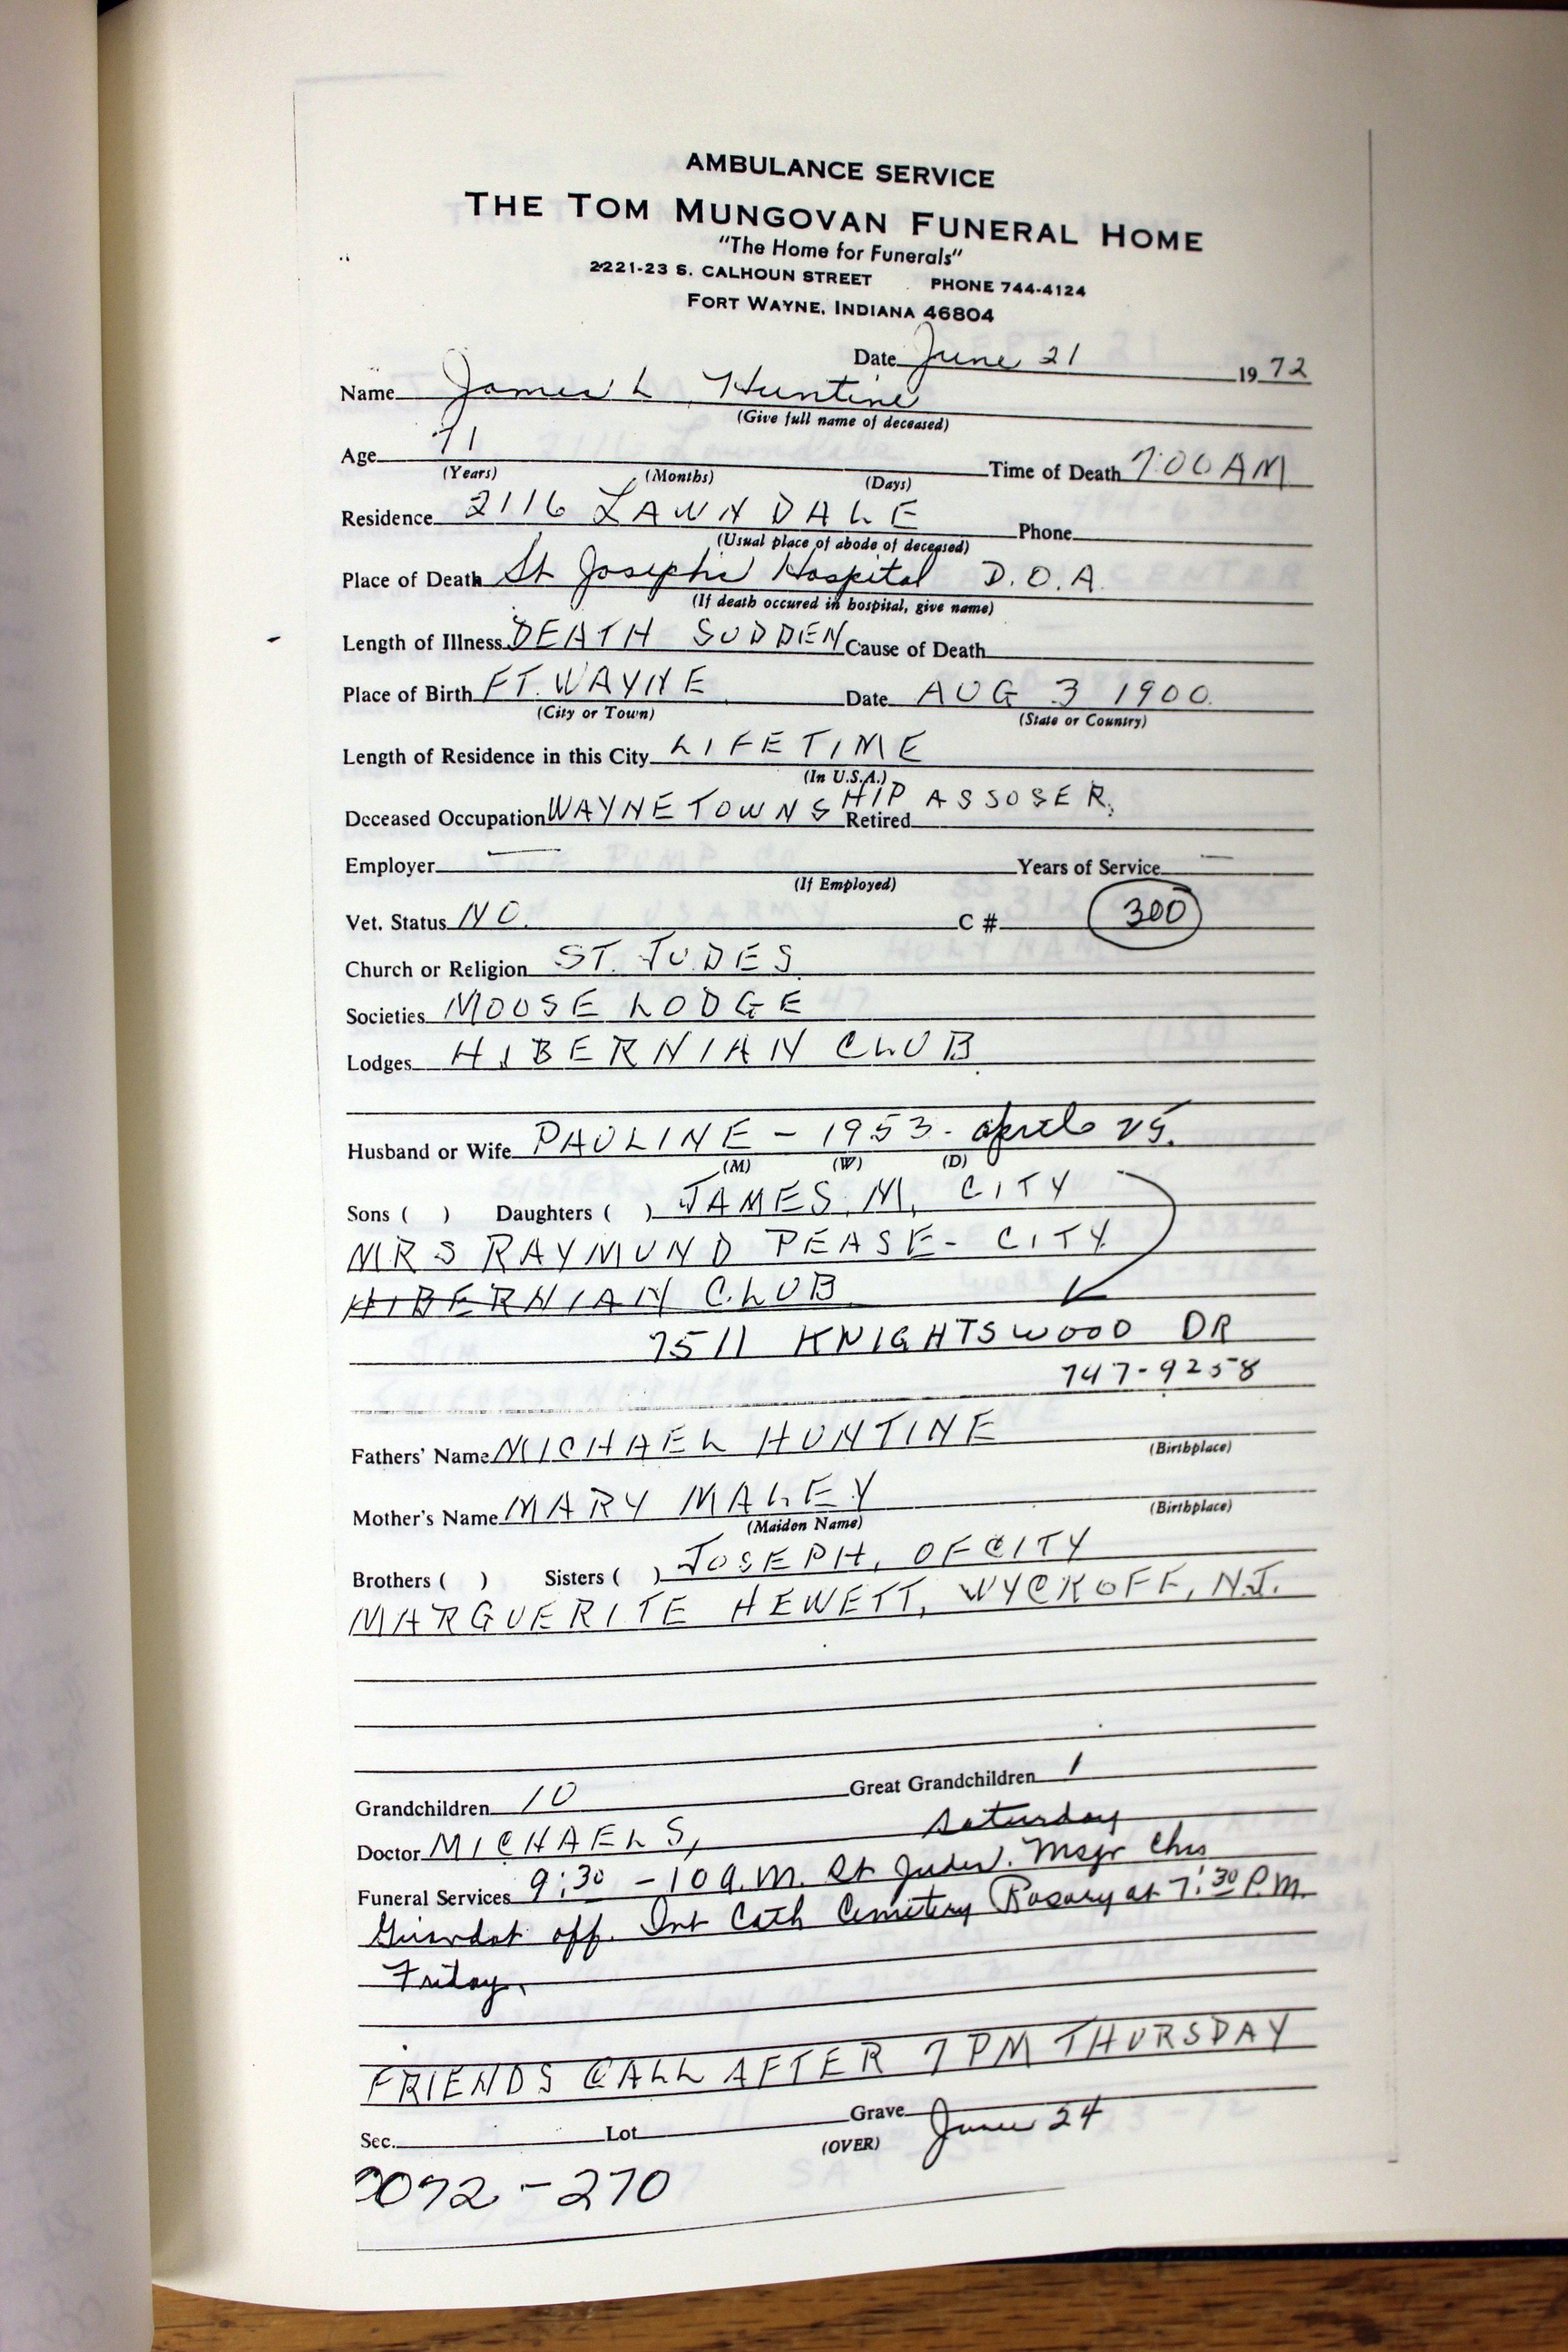 AMBULANCE SERVICE
THE TOM MUNGOVAN FUNERAL HOME
"The Home for Funerals"
2221-23 S. CALHOUN STREET PHONE 744-4124
FORT WAYNE, INDIANA 46804
Date June 21 1972
Name James L Huntine
(Give full name of deceased)
Age 71 Time of Death 7:00 AM
(Years) (Months) (Days)
Residence 2116 LAWNDALE Phone
(Usual place of abode of deceased)
Place of Death St Josephs Hospital D.O.A.
(If death occured in hospital, give name)
Length of Illness DEATH SUDDEN Cause of Death
Place of Birth FT. WAYNE Date AUG 3 1900
(City or Town) (State or Country)
Length of Residence in this City LIFETIME
(In U.S.A.)
Deceased Occupation WAYNE TOWNSHIP ASSOSER. Retired
Employer — Years of Service —
(If Employed)
Vet. Status NO. C # 300
Church or Religion ST. JUDES
Societies MOOSE LODGE
Lodges HIBERNIAN CLUB
Husband or Wife PAULINE - 1953 - april 25.
(M) (W) (D)
Sons ( ) Daughters ( ) JAMES. M. CITY
MRS RAYMUND PEASE - CITY
HIBERNIAN CLUB
7511 KNIGHTSWOOD DR
747-9258
Fathers' Name MICHAEL HUNTINE (Birthplace)
Mother's Name MARY MALEY (Birthplace)
(Maiden Name)
Brothers ( ) Sisters ( ) JOSEPH, OF CITY
MARGUERITE HEWETT, WYCKOFF, N.J.
Grandchildren 10 Great Grandchildren 1
Doctor MICHAELS, Saturday
Funeral Services 9:30 - 10 a.m. St Judes. Msgr Chs
off. Int Cath Cemetery Rosary at 7:30 P.M.
Friday.
FRIENDS CALL AFTER 7 PM THURSDAY
Sec. Lot Grave June 24
(OVER)
2072-270